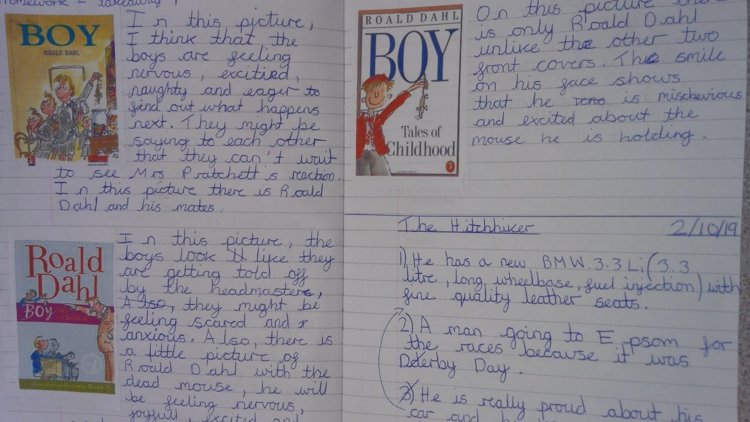 Homework - Takeaway
BOY
ROALD DAHL
In this picture,
I think that the
boys are feeling
nervous, excitied,
naughty and eager to
find out what happens
next. They might be
saying to each other
that they can't wait
to see Mrs Pratchett s reaction.
In this picture there is Roald
Dahl and his mates.
Roald
Dahl
BOY
In this picture, the
boys look like they
are getting told off
by the headmaster,
Also, they might be
feeling scared and
anxious. Also, there is
a little picture of
Roald Dahl with the
dead mouse, he will
be feeling nervous,
joyfull, excited and
ROALD DAHL
BOY
Tales of
Childhood
On this picture
is only Roald Dahl
unlike the other two
front covers. The smile
on his face shows
that he is mischevious
and excited about the
mouse he is holding.
The Hitchhiker 2/10/19
1) He has a new BMW 3.3 Li (3.3
litre, long wheelbase, fuel injection) with
fine quality leather seats.
2) A man going to Epsom for
the races because it was
Derby Day.
3) He is really proud about his
car and